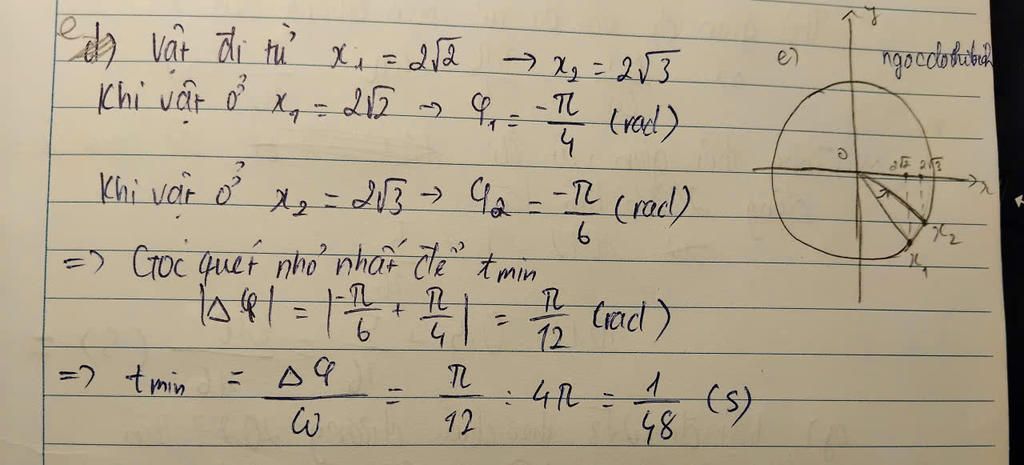 e
d) Vật đi từ x₁ = 2√2 → x₂ = 2√3
Khi vật ở x₁ = 2√2 → φ₁ = -π/4 (rad)
Khi vật ở x₂ = 2√3 → φ₂ = -π/6 (rad)
=> Góc quét nhỏ nhất để tmin
|Δφ| = |-π/6 + π/4| = π/12 (rad)
=> tmin = Δφ/ω = π/12 : 4π = 1/48 (s)
e)
y
0
2√2 2√3
x
x₂
x₁